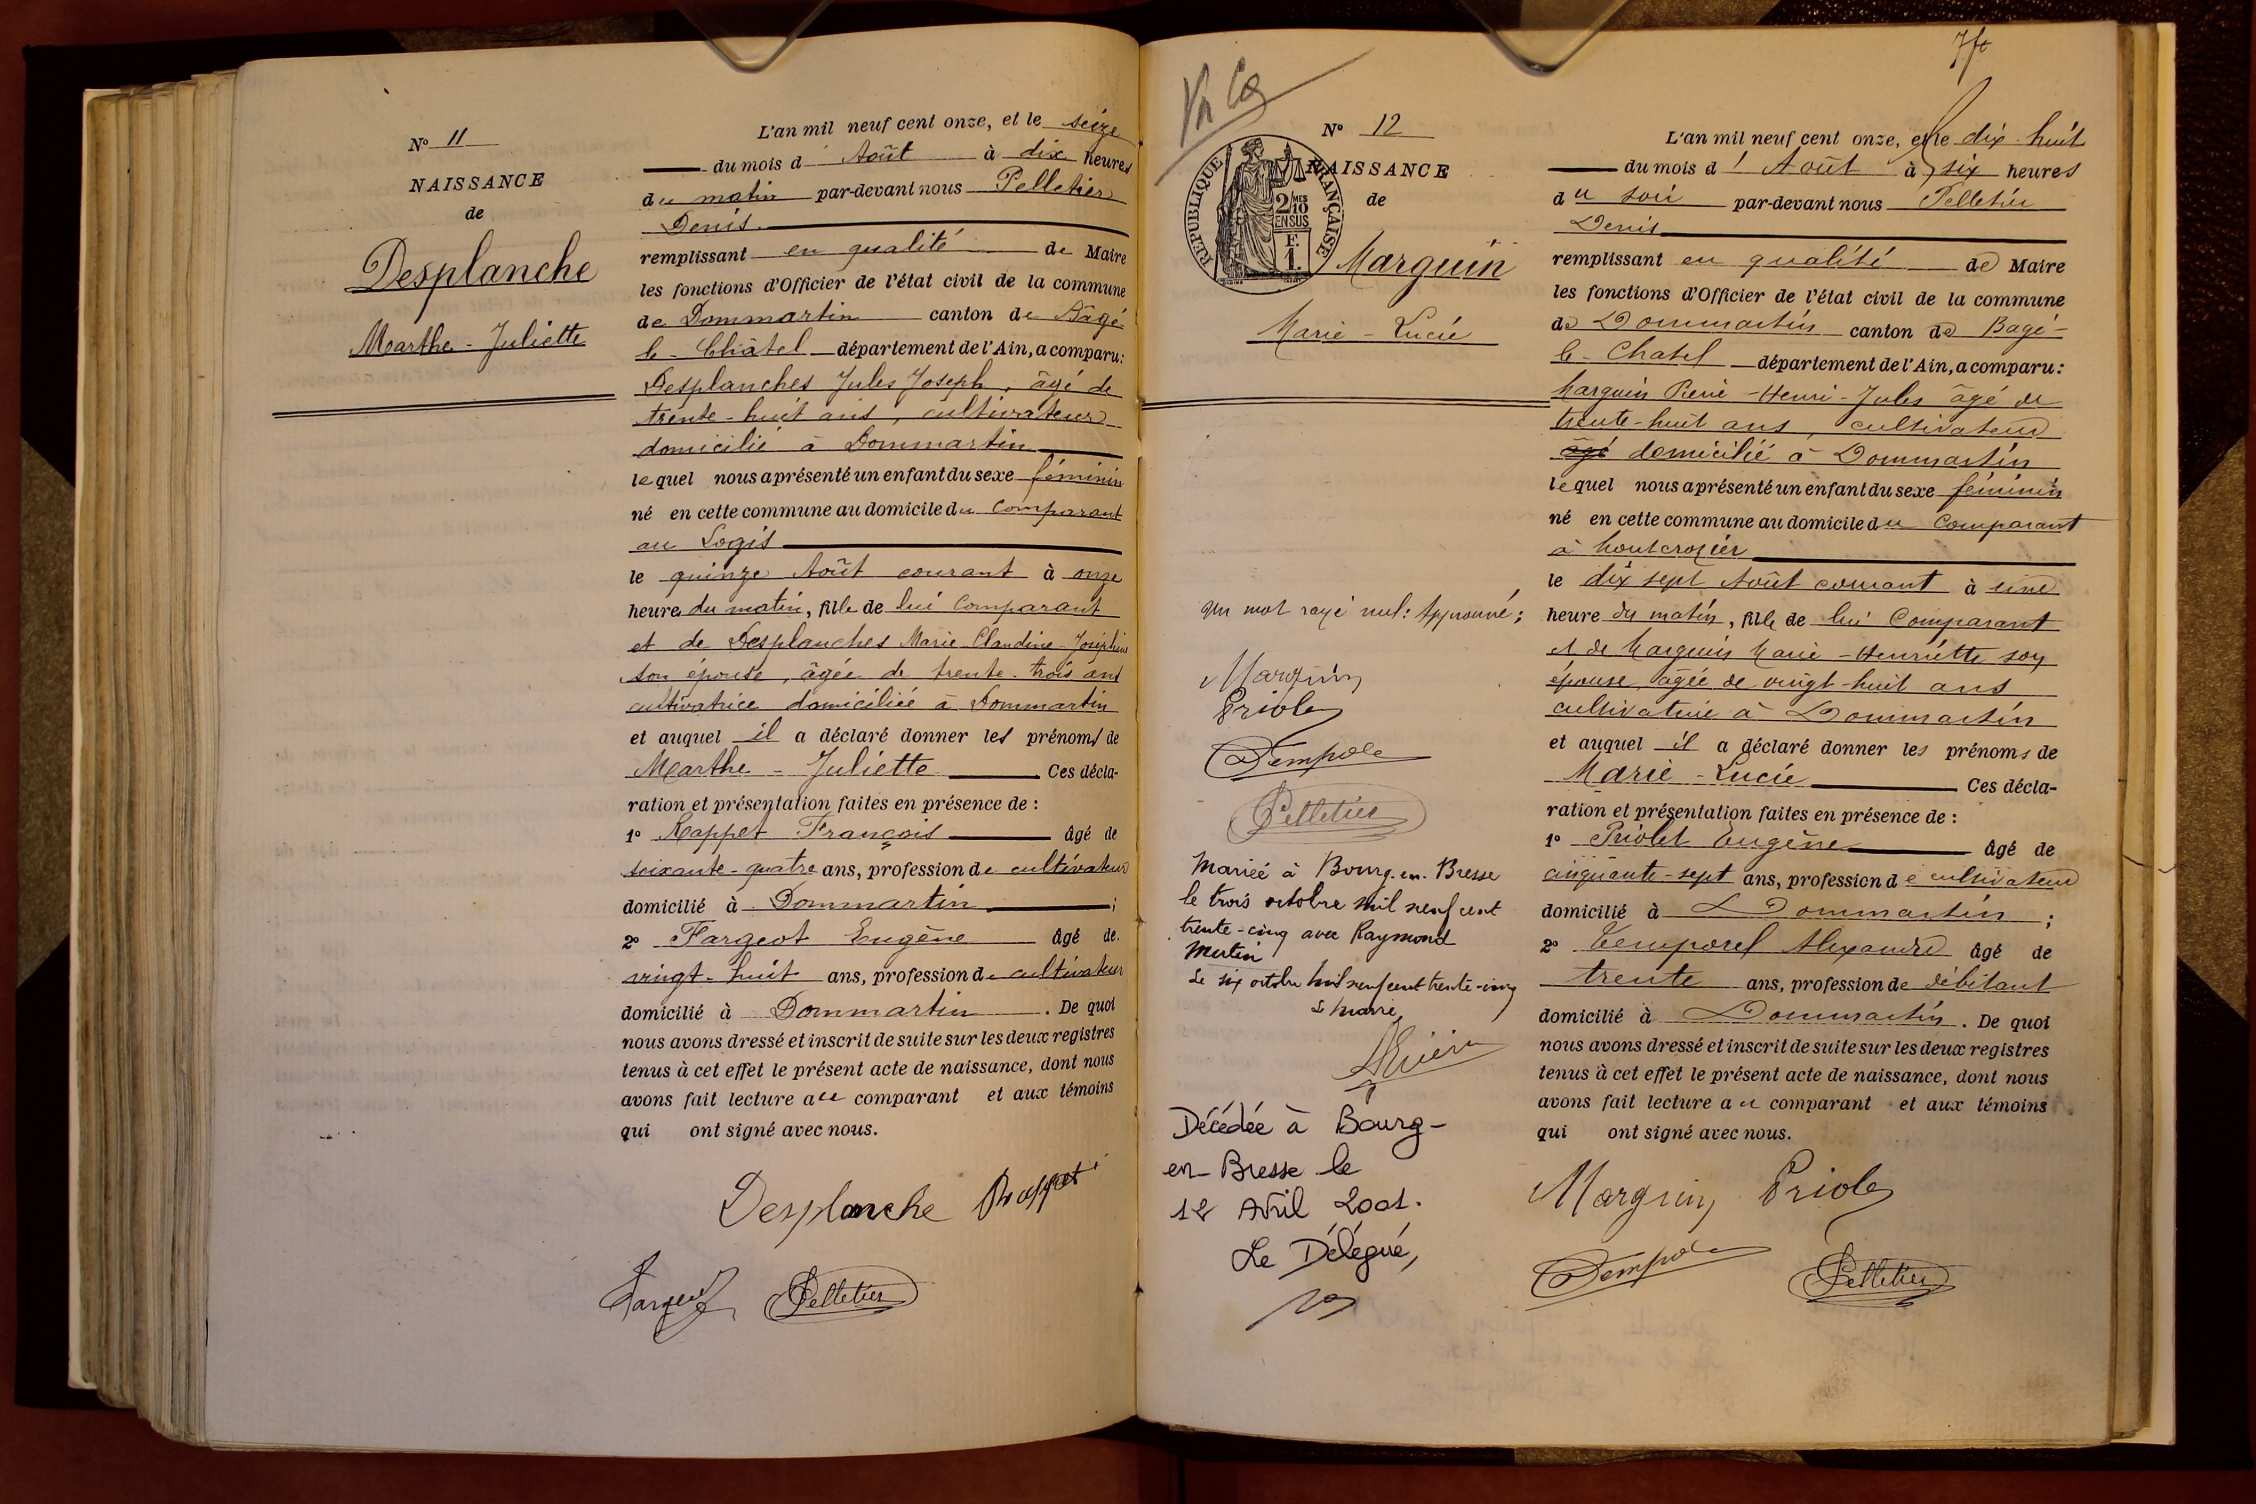 N° 11
NAISSANCE
de
Desplanche
Marthe - Juliette
L'an mil neuf cent onze, et le seize
du mois d' Août à dix heures
du matin par-devant nous Pelletier
Denis
remplissant en qualité de Maire
les fonctions d'Officier de l'état civil de la commune
de Dommartin canton de Bâgé
le - Châtel département de l'Ain, a comparu:
Desplanches Jules Joseph, âgé de
trente-huit ans, cultivateur
domicilié à Dommartin
lequel nous a présenté un enfant du sexe féminin
né en cette commune au domicile du comparant
au Logis
le quinze Août courant à onze
heure du matin, fille de lui comparant
et de Desplanches Marie Claudine - Joséphine
son épouse, âgée de trente-trois ans
cultivatrice domiciliée à Dommartin
et auquel il a déclaré donner les prénoms de
Marthe - Juliette Ces décla-
ration et présentation faites en présence de :
1° Rappet François âgé de
soixante-quatre ans, profession de cultivateur
domicilié à Dommartin ;
2° Fargeot Eugène âgé de
vingt-huit ans, profession de cultivateur
domicilié à Dommartin. De quoi
nous avons dressé et inscrit de suite sur les deux registres
tenus à cet effet le présent acte de naissance, dont nous
avons fait lecture au comparant et aux témoins
qui ont signé avec nous.
Desplanche Rappet
Fargeot Pelletier
7
N° 12
NAISSANCE
de
RÉPUBLIQUE FRANÇAISE
2/10 MES
EN SUS
F.
1.
Marguin
Marie - Lucie
Un mot rayé nul: Approuvé:
Marguin
Priolet
Tempore
Pelletier
Mariée à Bourg-en-Bresse
le trois octobre mil neuf cent
trente-cinq avec Raymond
Mutin
Le six octobre mil neuf cent trente-cinq
Le Maire,
Décédée à Bourg-
en-Bresse le
12 Avril 2001.
Le Délégué,
L'an mil neuf cent onze, et le dix-huit
du mois d' Août à six heures
du soir par-devant nous Pelletier
Denis
remplissant en qualité de Maire
les fonctions d'Officier de l'état civil de la commune
de Dommartin canton de Bagé-
le - Chatel département de l'Ain, a comparu:
Marguin Pierre - Henri - Jules âgé de
trente-huit ans, cultivateur
âgé domicilié à Dommartin
lequel nous a présenté un enfant du sexe féminin
né en cette commune au domicile du comparant
à Montcrozier
le dix sept Août courant à une
heure du matin, fille de lui Comparant
et de Marguin Marie - Henriette son
épouse, âgée de vingt-huit ans
cultivatrice à Dommartin
et auquel il a déclaré donner les prénoms de
Marie - Lucie Ces décla-
ration et présentation faites en présence de :
1° Priolet Eugène âgé de
cinquante-sept ans, profession de cultivateur
domicilié à Dommartin ;
2° Temporel Alexandre âgé de
trente ans, profession de débitant
domicilié à Dommartin. De quoi
nous avons dressé et inscrit de suite sur les deux registres
tenus à cet effet le présent acte de naissance, dont nous
avons fait lecture au comparant et aux témoins
qui ont signé avec nous.
Marguin Priolet
Tempore Pelletier